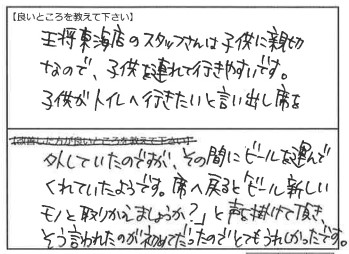 【良いところを教えて下さい】
王将東海店のスタッフさんは子供に親切
なので、子供を連れて行きやすいです。
子供がトイレへ行きたいと言い出し席を
【改善した方が良いところを教えて下さい】
外していたのですが、その間にビールを運んで
くれていたようです。席へ戻ると「ビール新しい
モノと取りかえましょうか?」と声を掛けて頂き
そう言われたのが初めてだったのでとてもうれしかったです。